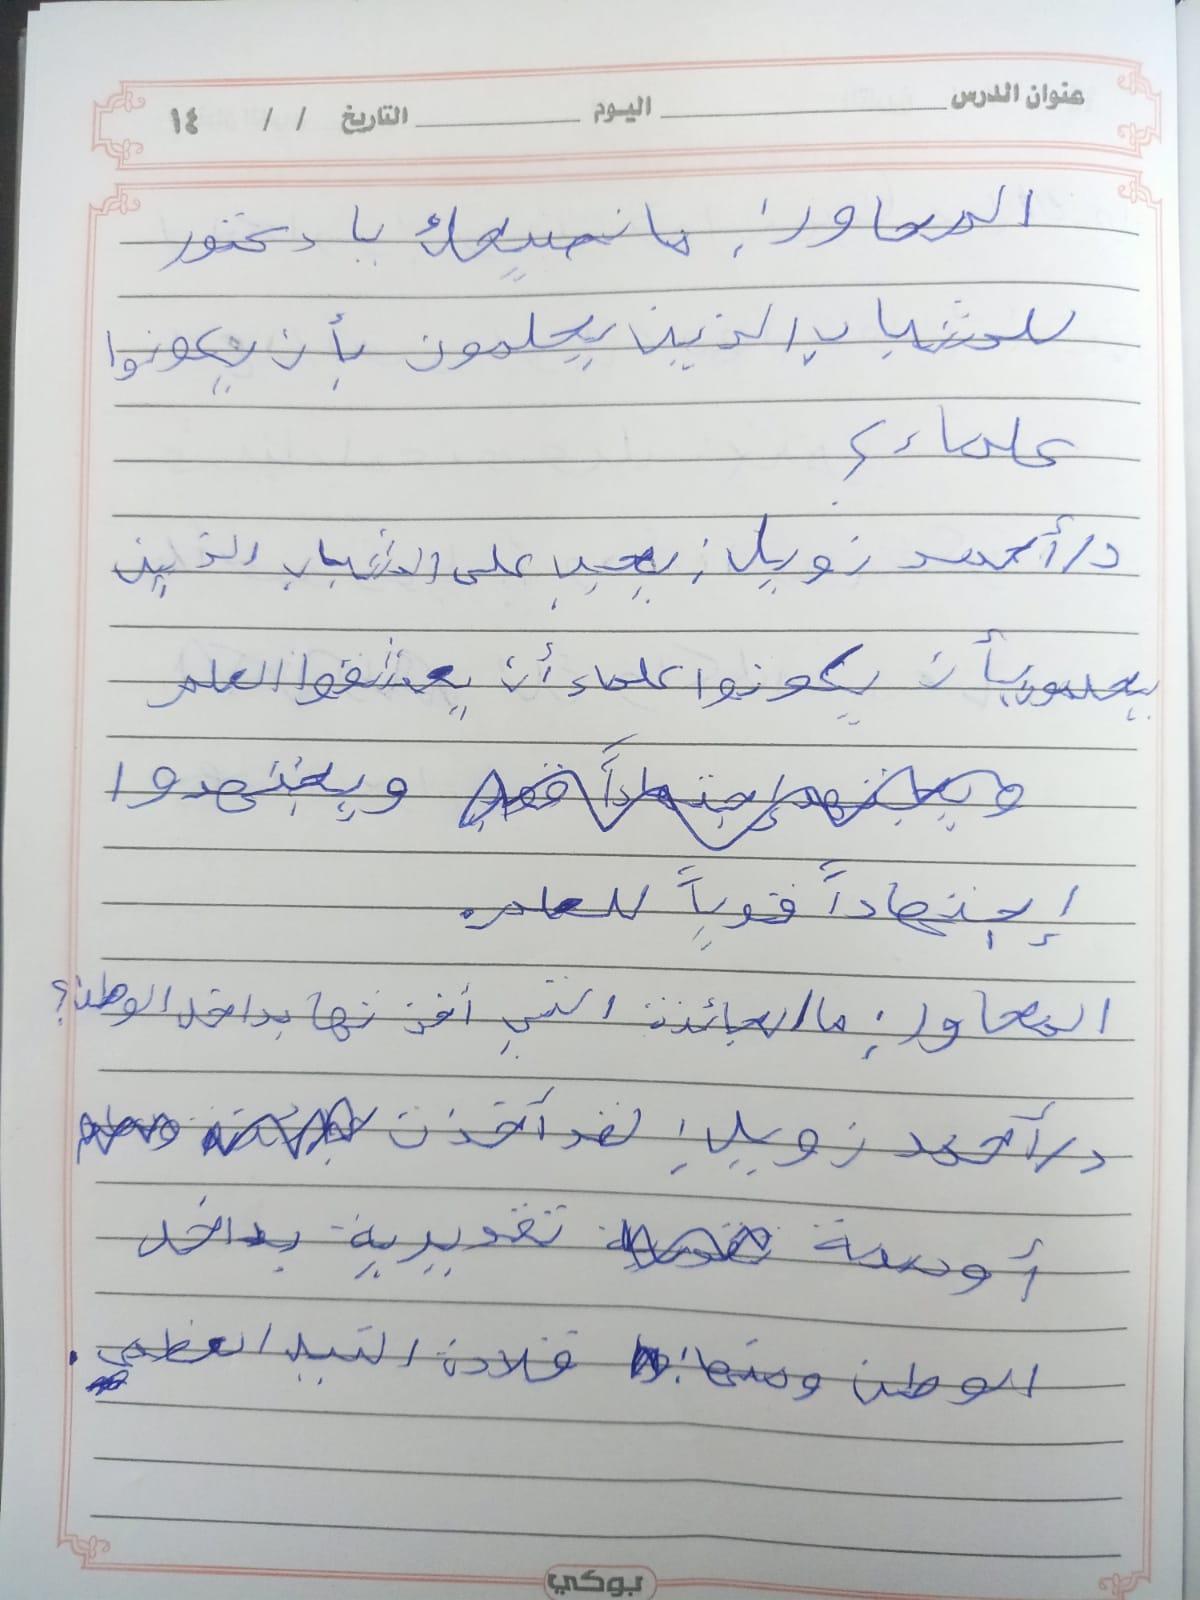 عنوان الدرس اليوم التاريخ / / ١٤
المحاور: ما نصيحتك يا دكتور
للشباب الذين يحلمون بأن يكونوا
علماء؟
د/أحمد زويل: يجب على الشباب الذين
يحلمون بأن يكونوا علماء أن يعشقوا العلم
ويجتهدوا
إجتهاداً قوياً للعلم.
المحاور: ما الجائزة التي أخذتها بداخل الوطن؟
د/أحمد زويل: لقد أخذت
أوسمة تقديرية بداخل
الوطن ومنها: قلادة النيل العظمى.
بوكي